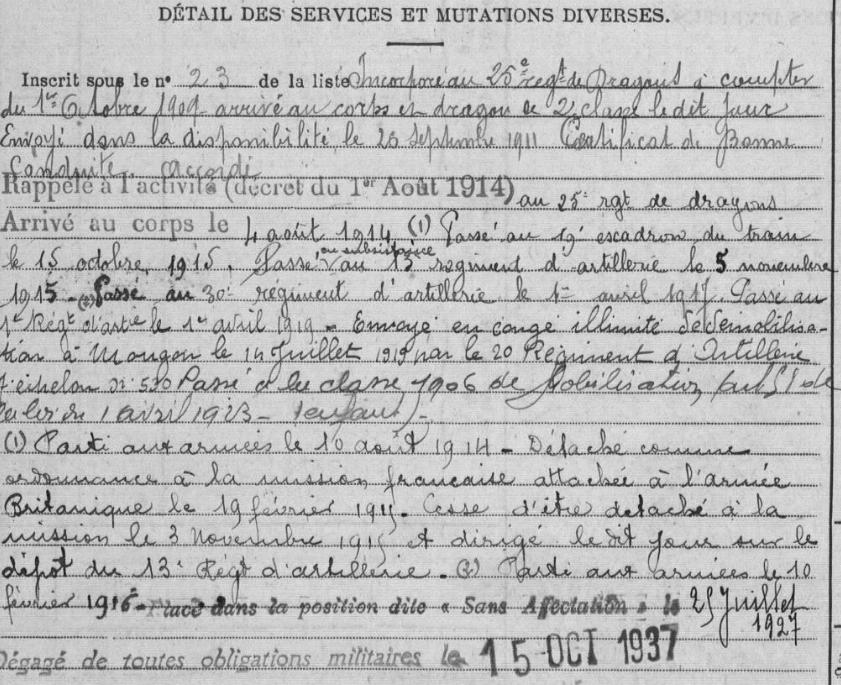 DÉTAIL DES SERVICES ET MUTATIONS DIVERSES.
Inscrit sous le n° 23 de la liste Incorporé au 25e régt de Dragons à compter
du 1er Octobre 1909 arrivé au corps et dragon de 2e classe le dit jour
Envoyé dans la disponibilité le 25 Septembre 1911 Certificat de Bonne
Conduite accordé
Rappelé à l'activité (décret du 1er Août 1914) au 25e rgt de dragons
Arrivé au corps le 4 août 1914 (1) Passé au 19e escadron du train
ou subsistance
le 15 octobre 1915. Passé au 13e régiment d'artillerie le 5 novembre
1915 - (2) Passé au 30e régiment d'artillerie le 1er avril 1917. Passé au
1er Régt d'artie le 1er avril 1919 - Envoyé en congé illimité de démobilisa-
tion à Mougon le 14 Juillet 1919 par le 20 Régiment d'Artillerie
échelon N° 520 Passé à la classe 1906 de Mobilisation
1 avril 1923 -
(1) Parti aux armées le 10 août 1914 - Détaché comme
ordonnance à la mission française attachée à l'armée
Britanique le 19 février 1915. Cesse d'être détaché à la
mission le 3 Novembre 1915 et dirigé le dit jour sur le
dépôt du 13e Régt d'artillerie. (2) Parti aux armées le 10
février 1916 - Placé dans la position dite « Sans Affectation » le 25 Juillet
1927
Dégagé de toutes obligations militaires le 15 OCT 1937